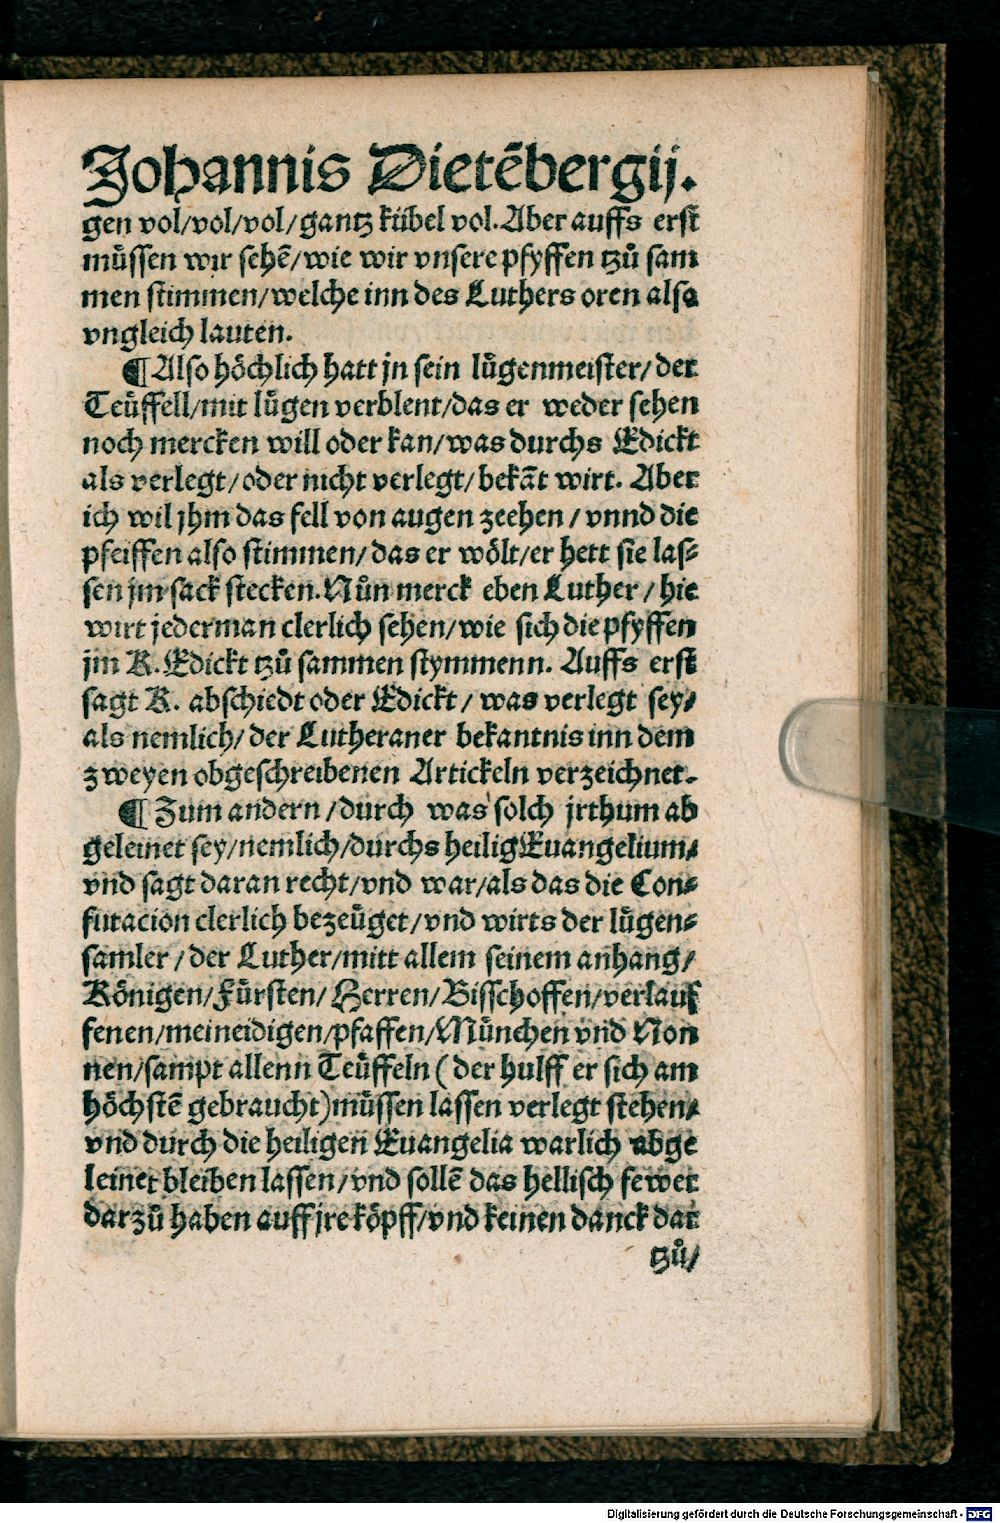 Johannis Dietēbergij.
gen vol/vol/vol/gantz kübel vol. Aber auffs erst
müssen wir sehē/wie wir vnsere pfyffen tzů sam
men stimmen/welche inn des Luthers oren also
vngleich lauten.
¶ Also höchlich hatt jn sein lügenmeister/der
Teüffell/mit lügen verblent/das er weder sehen
noch mercken will oder kan/was durchs Edickt
als verlegt/oder nicht verlegt/bekāt wirt. Aber
ich wil jhm das fell von augen zeehen/vnnd die
pfeiffen also stimmen/das er wölt/er hett sie las⸗
sen jm sack stecken. Nůn merck eben Luther/hie
wirt jederman clerlich sehen/wie sich die pfyffen
jm K. Edickt tzů sammen stymmenn. Auffs erst
sagt K. abschiedt oder Edickt/was verlegt sey/
als nemlich/der Lutheraner bekantnis inn dem
zweyen obgeschreibenen Artickeln verzeichnet.
¶ Zum andern/durch was solch jrthum ab
geleinet sey/nemlich/durchs heilig Euangelium/
vnd sagt daran recht/vnd war/als das die Con⸗
futacion clerlich bezeüget/vnd wirts der lügen⸗
samler/der Luther/mitt allem seinem anhang/
Königen/Fürsten/Herren/Bisschoffen/verlauf
fenen/meineidigen/pfaffen/München vnd Non
nen/sampt allenn Teüffeln (der hulff er sich am
höchstē gebraucht) müssen lassen verlegt stehen/
vnd durch die heiligen Euangelia warlich abge
leinet bleiben lassen/vnd sollē das hellisch fewer
darzů haben auff jre köpff/vnd keinen danck dar
tzů/
Digitalisierung gefördert durch die Deutsche Forschungsgemeinschaft - DFG